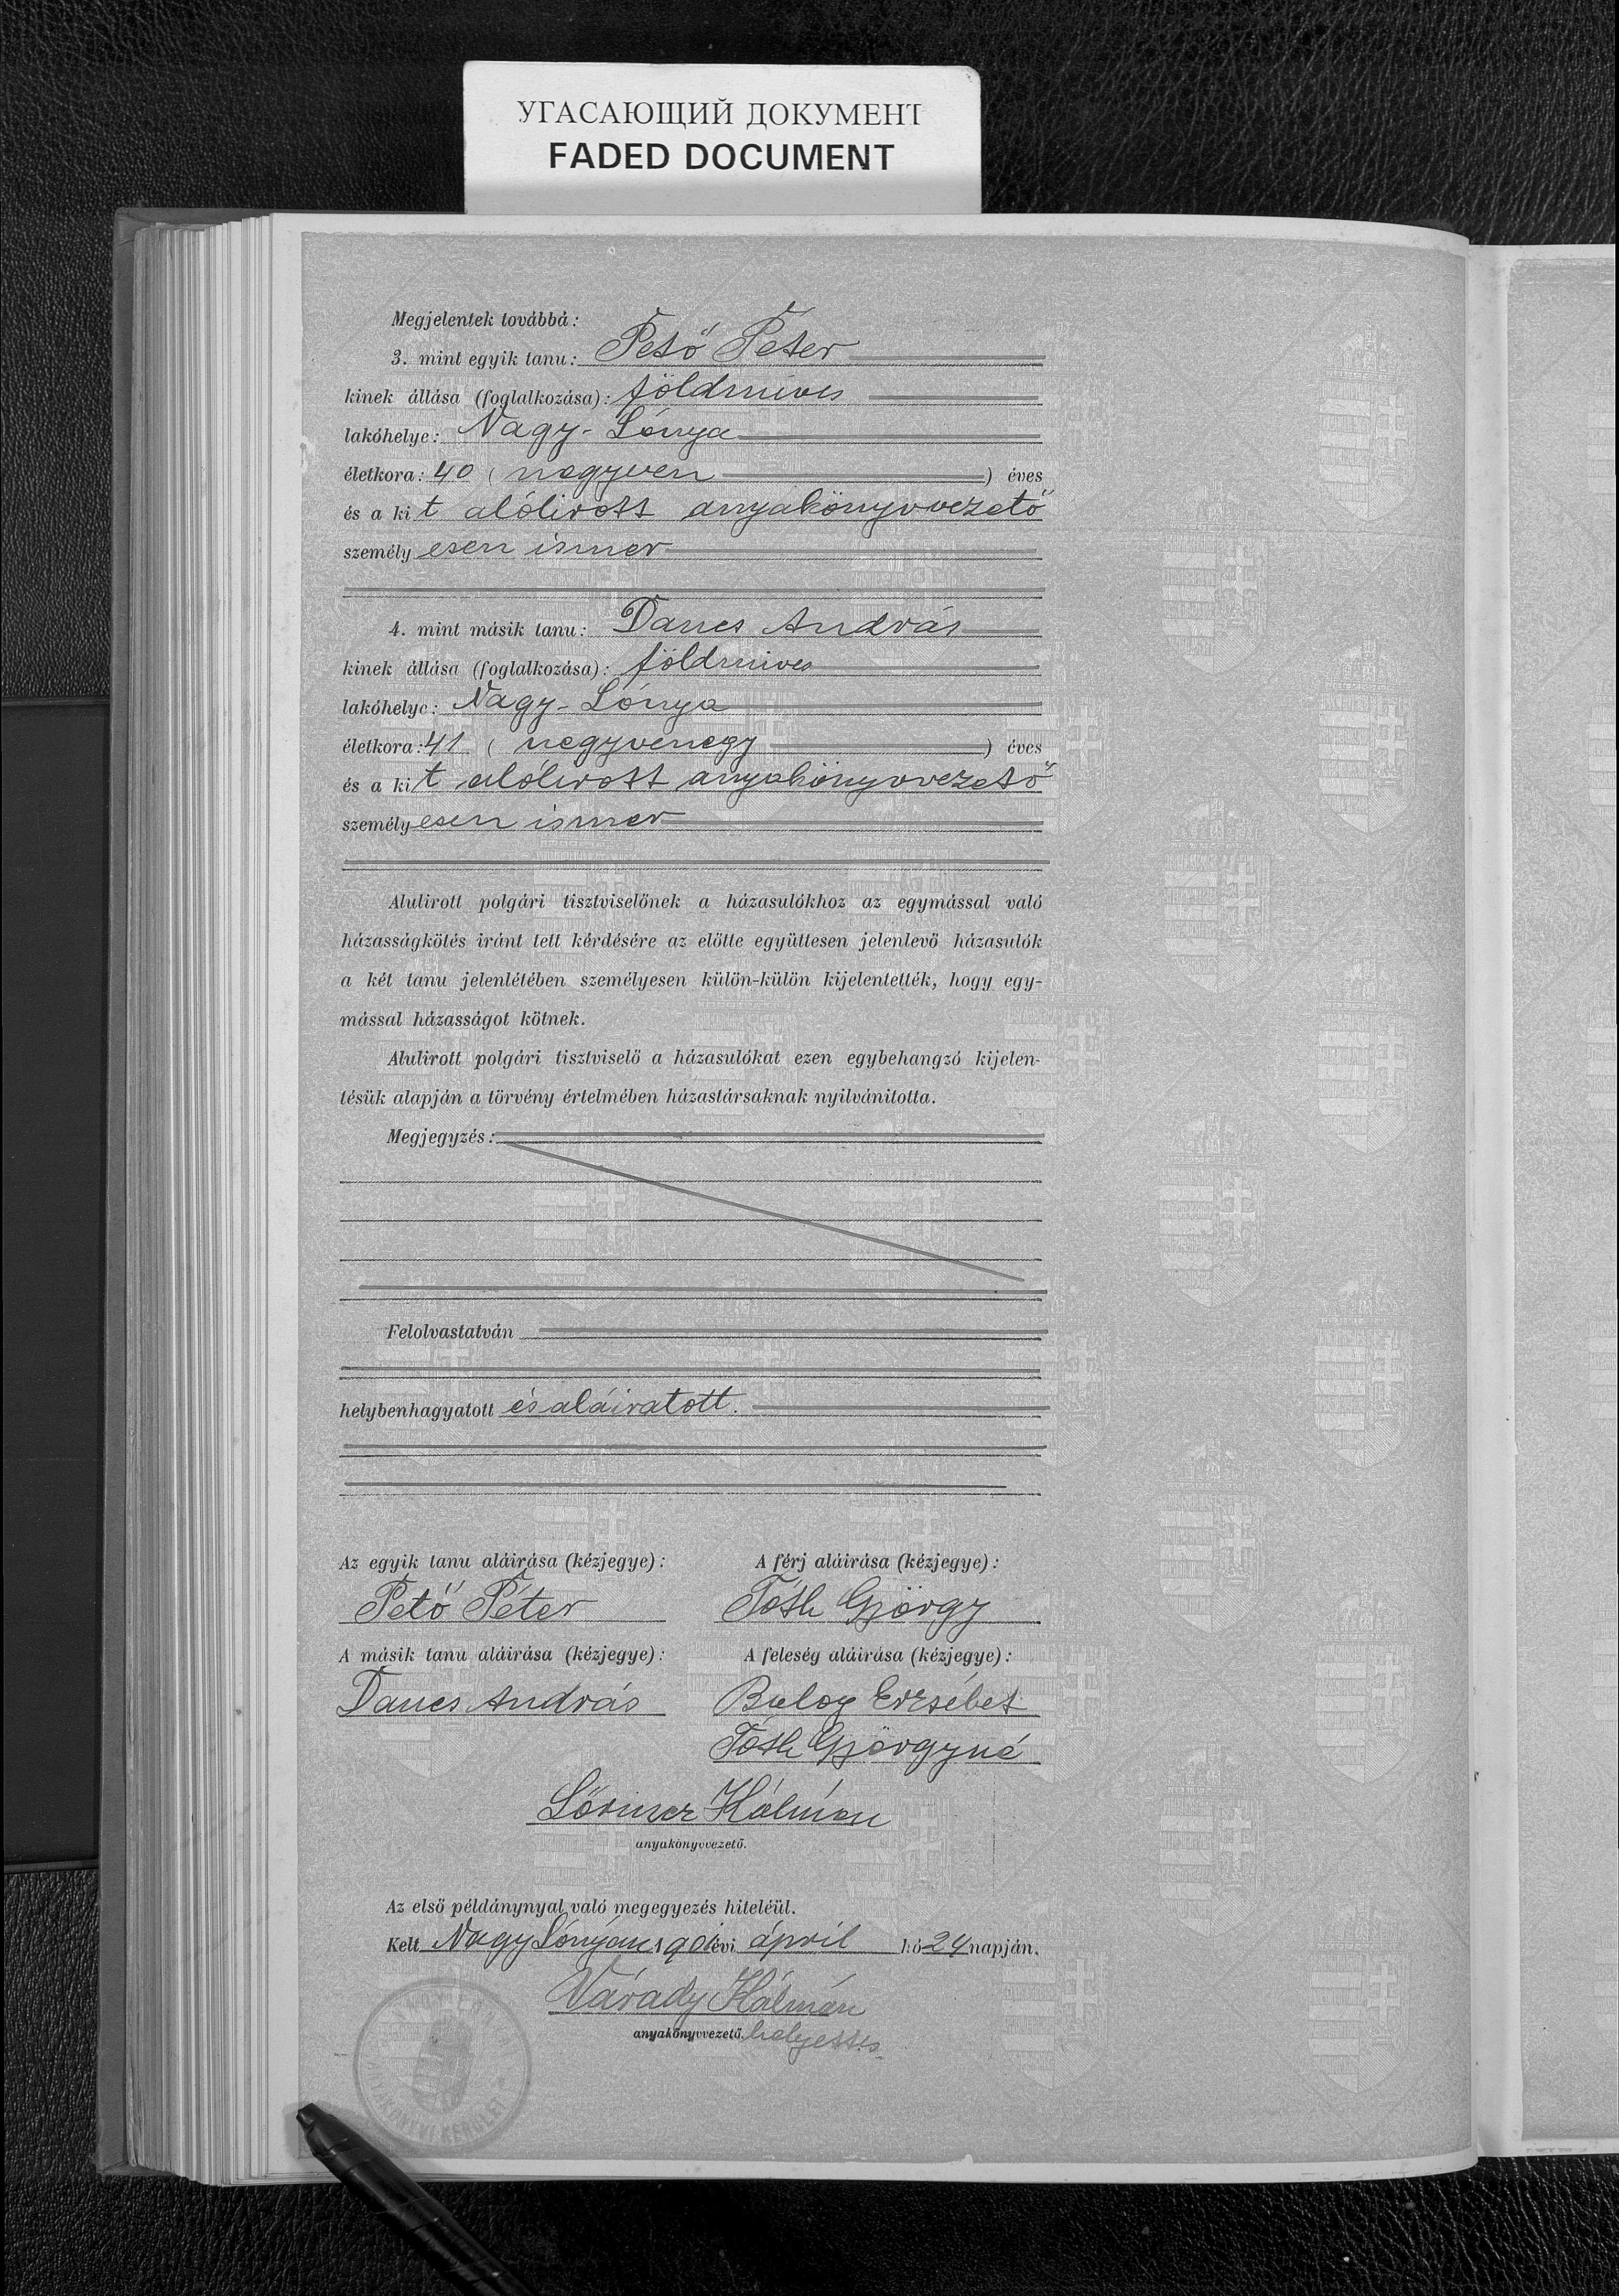 УГАСАЮЩИЙ ДОКУМЕНТ
FADED DOCUMENT
Megjelentek továbbá:
3. mint egyik tanu: Pető Péter
kinek állása (foglalkozása): földmives
lakóhelye: Nagy-Lónya
életkora: 40 (negyven) éves
és a kit alólirott anyakönyvvezető
személyesen ismer
4. mint másik tanu: Dancs András
kinek állása (foglalkozása): földmives
lakóhelye: Nagy-Lónya
életkora: 41 (negyvenegy) éves
és a kit alólirott anyakönyvvezető
személyesen ismer
Alulirott polgári tisztviselőnek a házasulókhoz az egymással való
házasságkötés iránt tett kérdésére az előtte együttesen jelenlevő házasulók
a két tanu jelenlétében személyesen külön-külön kijelentették, hogy egy-
mással házasságot kötnek.
Alulirott polgári tisztviselő a házasulókat ezen egybehangzó kijelen-
tésük alapján a törvény értelmében házastársaknak nyilvánitotta.
Megjegyzés:
Felolvastatván
helybenhagyatott és aláiratott.
Az egyik tanu aláirása (kézjegye): A férj aláirása (kézjegye):
Pető Péter Tóth György
A másik tanu aláirása (kézjegye): A feleség aláirása (kézjegye):
Dancs András Balog Erzsébet
Tóth Györgyné
Lőrincz Kálmán
anyakönyvvezető.
Az első példánynyal való megegyezés hiteléül.
Kelt Nagy Lónyán 1901 évi ápril hó 24 napján.
Várady Kálmán
anyakönyvvezető helyettes